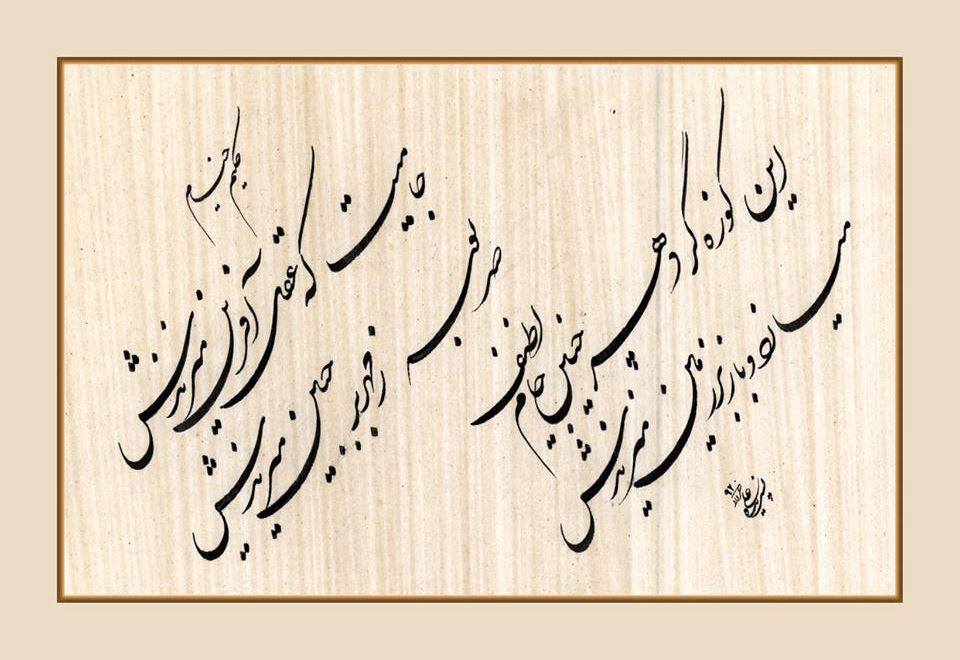 جامیست که عقل آفرین میزندش
صد بوسه ز مهر بر جبین میزندش
این کوزه گر دهر چنین جام لطیف
میسازد و باز بر زمین میزندش
حکیم خیام
۹۲